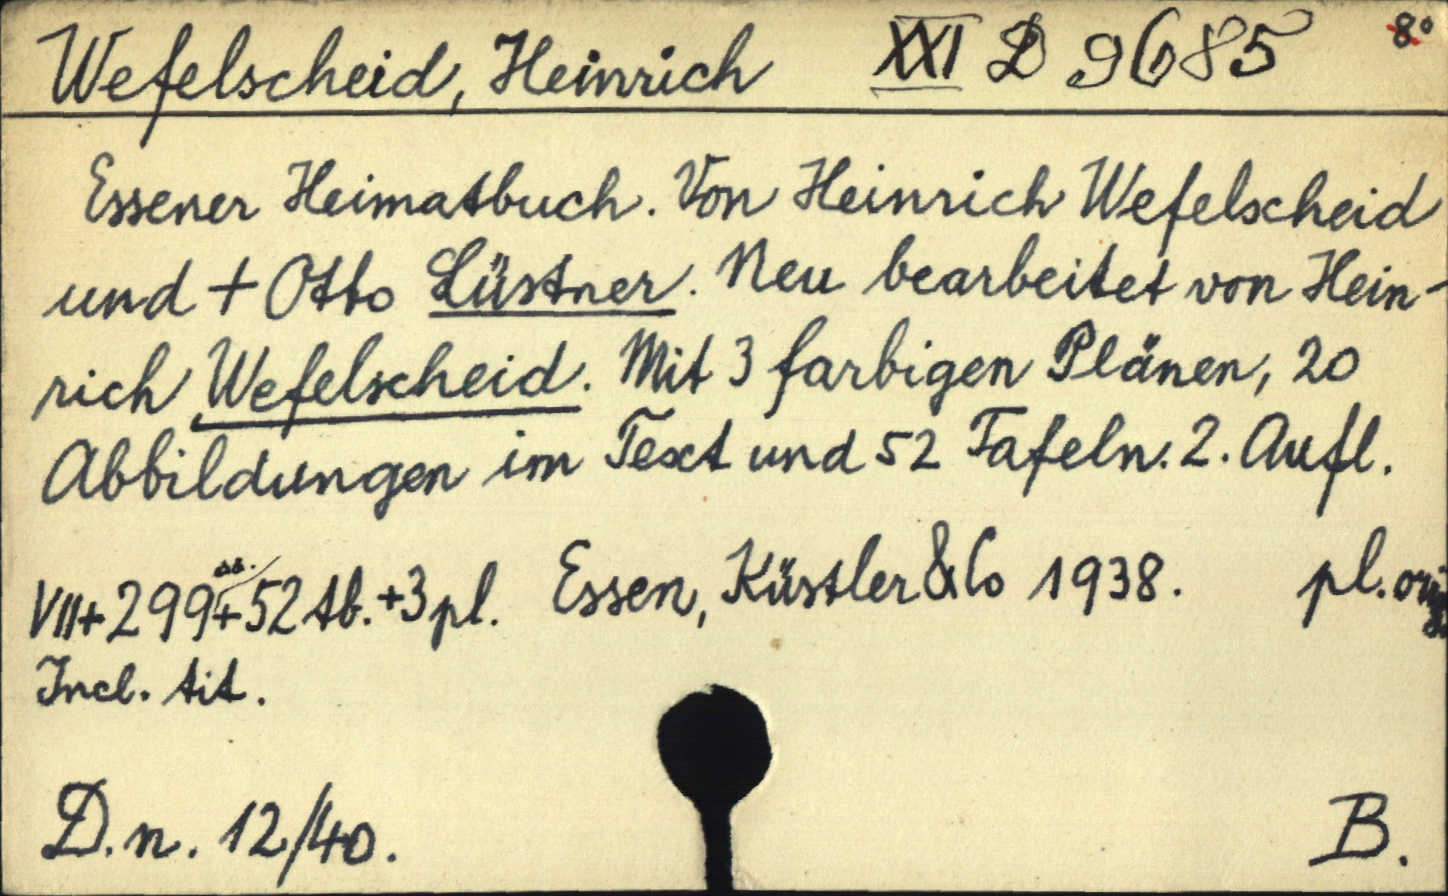 Wefelscheid, Heinrich XXI D 9685 8°
Essener Heimatbuch. Von Heinrich Wefelscheid
und + Otto Lüstner. Neu bearbeitet von Hein-
rich Wefelscheid. Mit 3 farbigen Plänen, 20
Abbildungen im Text und 52 Tafeln. 2. Aufl.
VII + 299 ss. + 52 tb. + 3 pl. Essen, Küstler & Co 1938. pl.
Incl. tit.
D. n. 12/40. B.